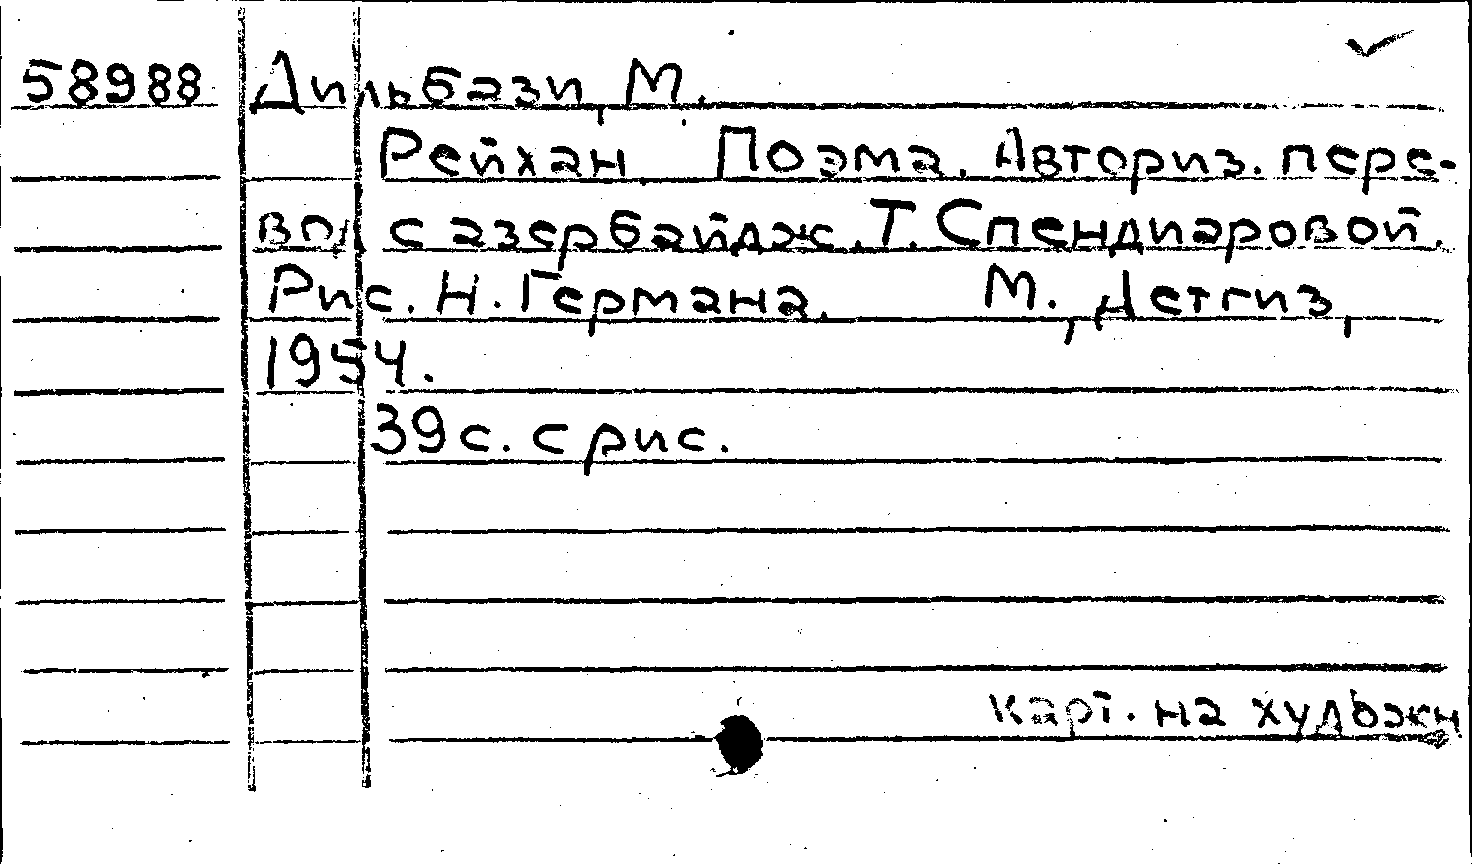 58988 Дильбази, М.
Рейхан. Поэма. Авториз. пере-
вод с азербайдж. Т. Спендиаровой.
Рис. Н. Германа. М., Детгиз,
1954.
39 с. с рис.
карт. на художн